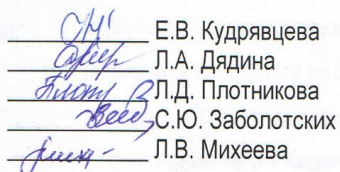 Е.В. Кудрявцева
Л.А. Дядина
Л.Д. Плотникова
С.Ю. Заболотских
Л.В. Михеева